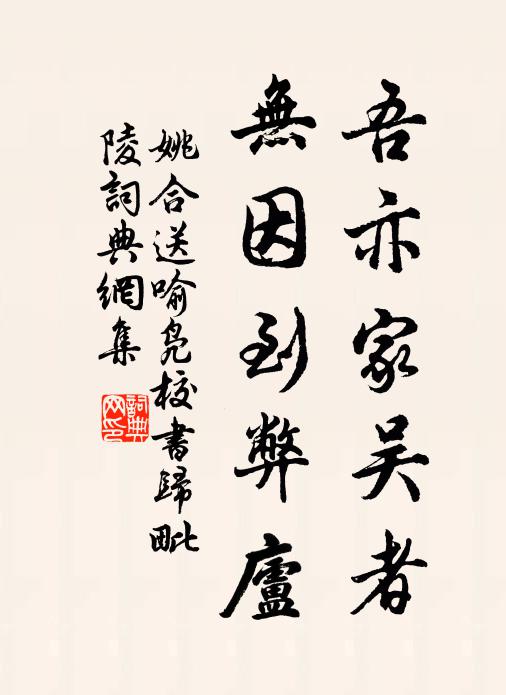 吾亦家吴者
無因到弊廬
姚合送喻凫校書歸毗
陵詞典網集
詞典
网印